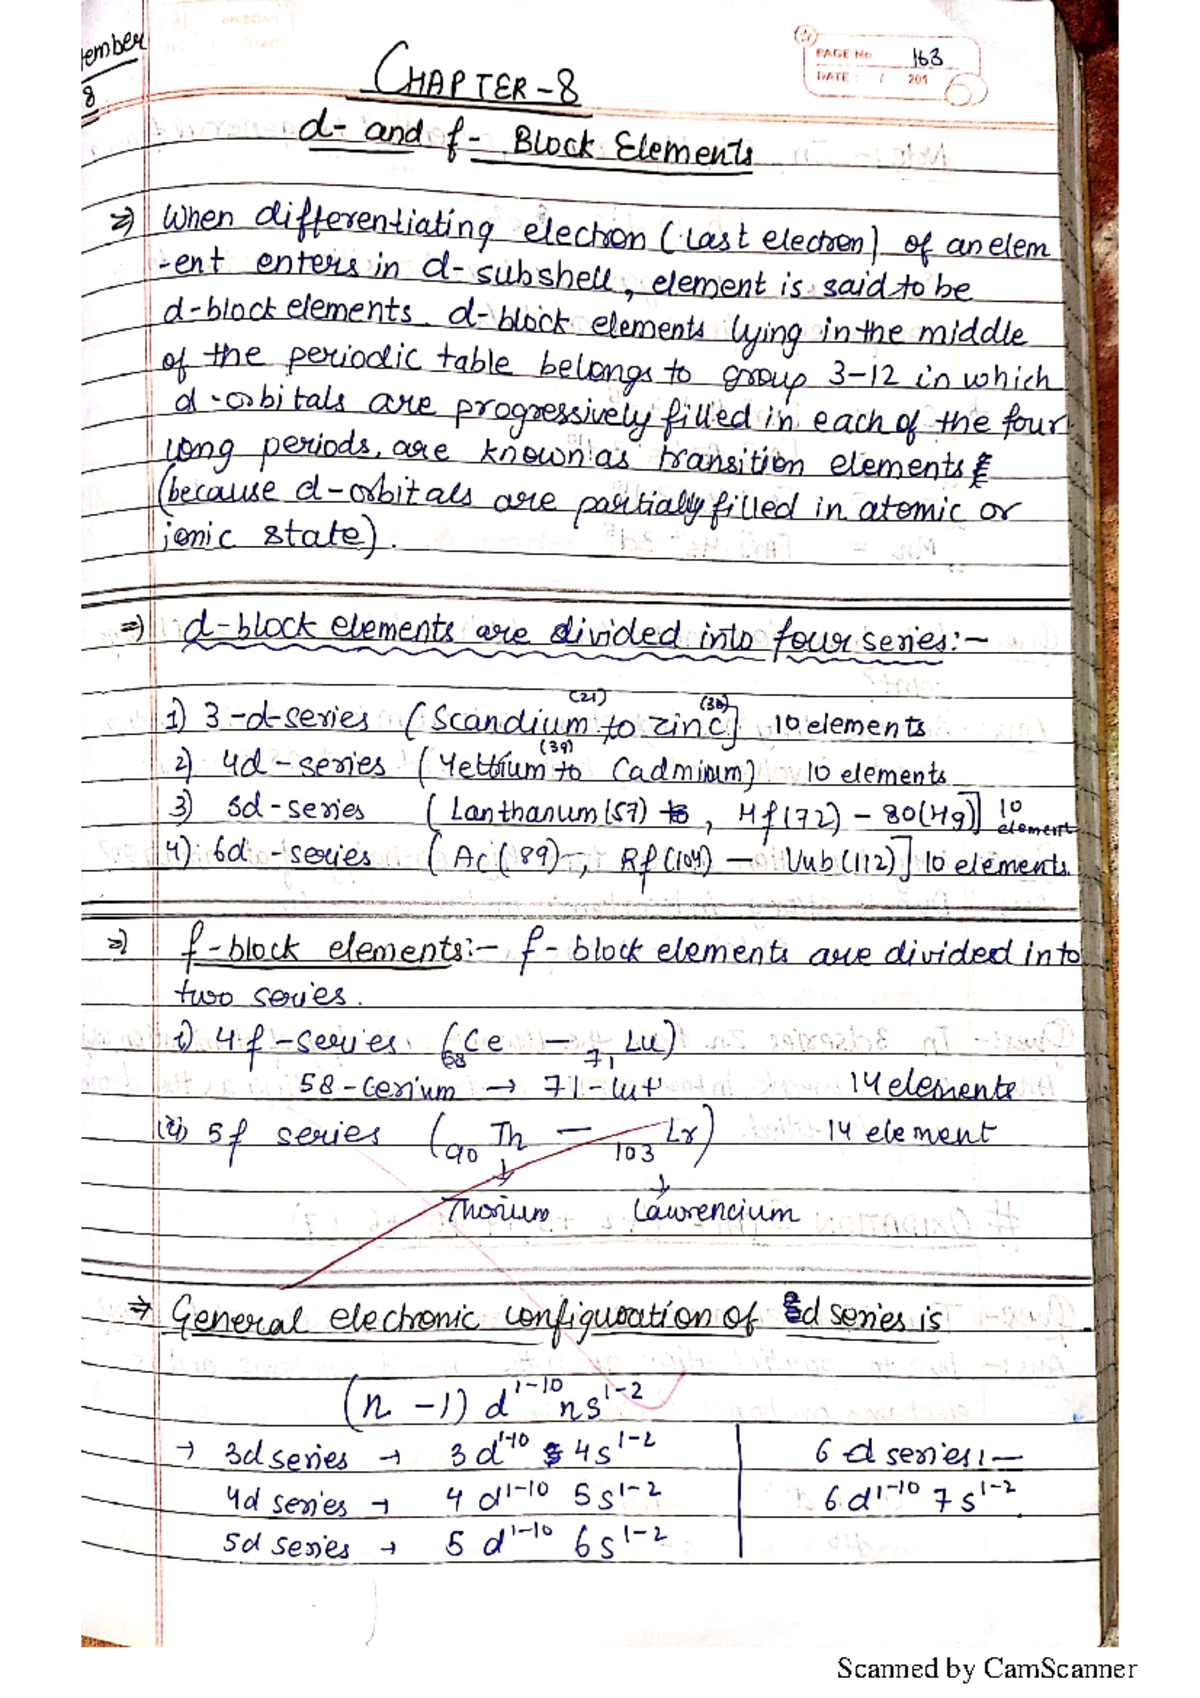 tember
8
PAGE No 163
DATE: / 201
CHAPTER-8
d- and f- Block Elements
⇒ When differentiating electron (Last electron) of an elem
-ent enters in d-subshell, element is said to be
d-block elements. d-block elements lying in the middle
of the periodic table belongs to group 3-12 in which
d-orbitals are progressively filled in each of the four
long periods, are known as transition elements
(because d-orbitals are partially filled in atomic or
ionic state).
⇒ d-block elements are divided into four series:-
1) 3-d-series (Scandium (21) to zinc (30)] 10 elements
2) 4d-series (Yettrium (39) to Cadmium) 10 elements
3) 5d-series (Lanthanum (57) to, Hf(72) - 80(Hg)] 10 element
4) 6d-series (Ac(89)-, Rf(104) - Uub(112)] 10 elements.
⇒ f-block elements:- f-block elements are divided into
two series.
i) 4f-series (58Ce - 71Lu)
58-Cerium → 71-Lut 14 elements
(2) 5f series (90Th - 103Lr) 14 element
↓ ↓
Thorium Lawrencium
⇒ General electronic configuration of d series is
(n-1) d¹⁻¹⁰ ns¹⁻²
→ 3d series → 3d¹⁻¹⁰ 4s¹⁻²
4d series → 4d¹⁻¹⁰ 5s¹⁻²
5d series → 5d¹⁻¹⁰ 6s¹⁻²
6d series:-
6d¹⁻¹⁰ 7s¹⁻²
Scanned by CamScanner